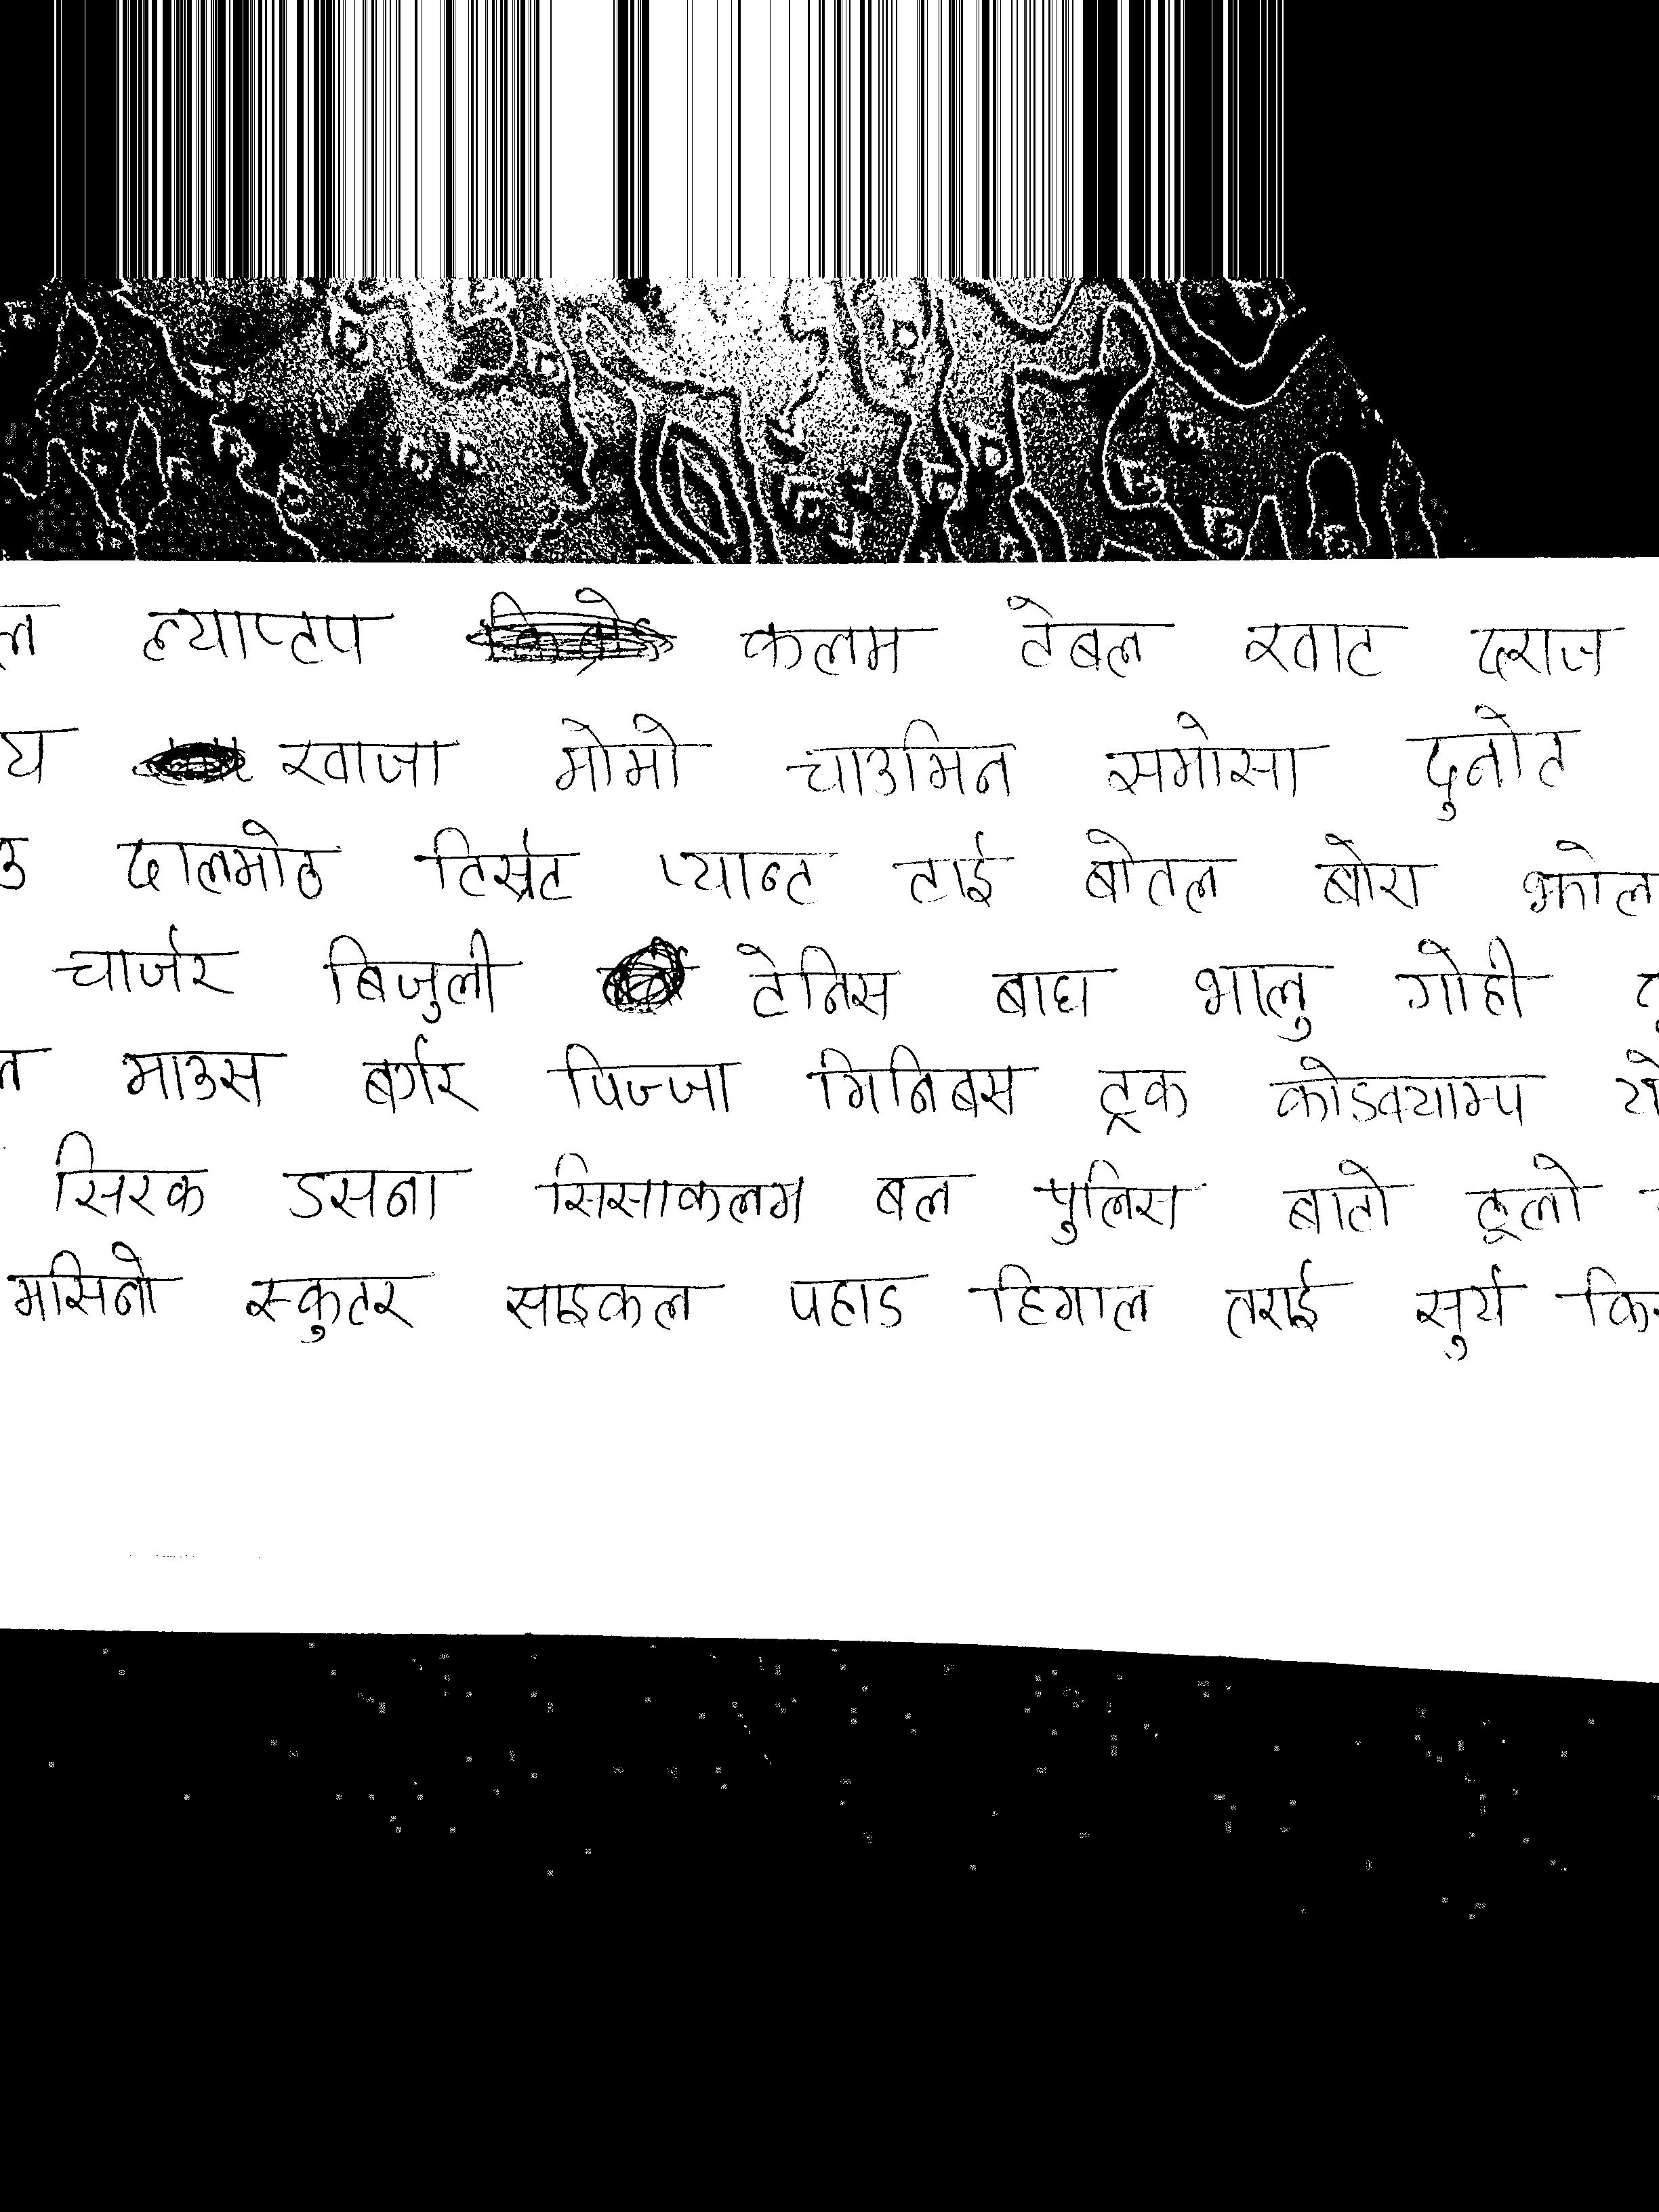 ल्याप्टप कलम टेबल खाट दराज
खाजा मोमो चाउमिन समोसा दुनोट
दालमोठ टिर्सट प्यान्ट टाई बोतल बोरा झोल
चार्जर बिजुली टेनिस बाघ भालु गोही
माउस बर्गर पिज्जा मिनिबस ट्रक कोडक्याम्प
सिरक डसना सिसाकलम बल पुलिस बाटो ठूलो
मसिनो स्कुटर साइकल पहाड हिमाल तराई सुर्य